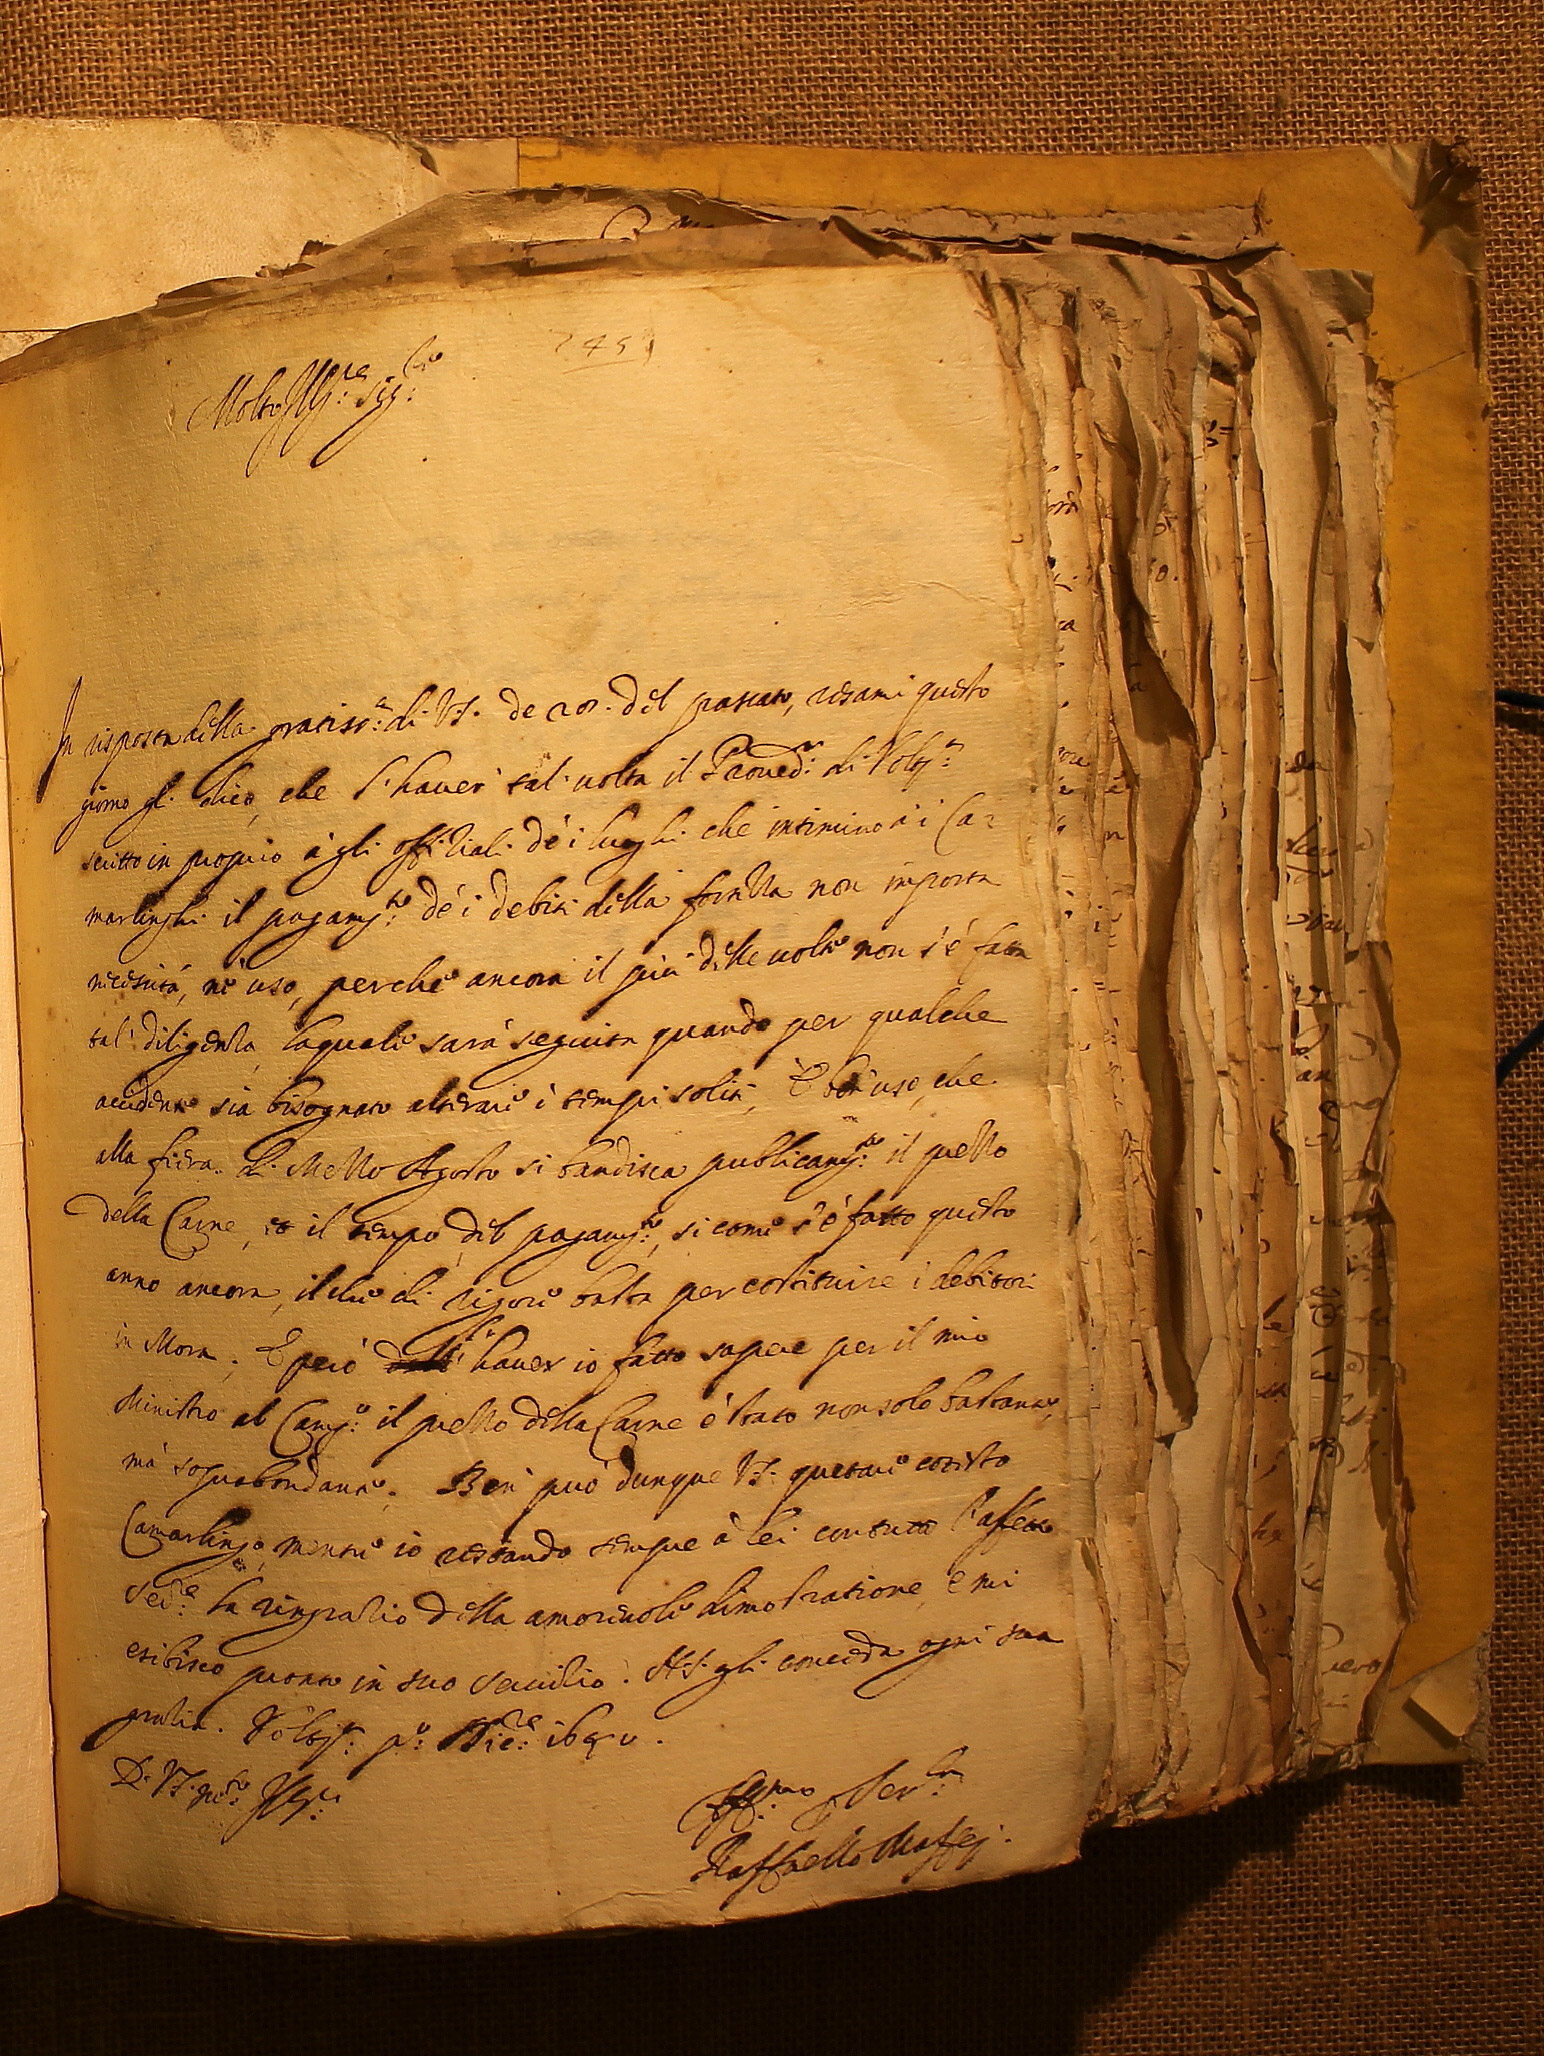 245
Molto Ill.re Sig.re
In risposta della gratiss.a di VS. de 28. del passato, resami questo
giorno gli dico, che l'haver tal volta il Proved.r di Volt.ra
scritto in proprio à gli offitiali de i luoghi che intimino à i Ca-
marlinghi il pagam.to de i debiti della fortezza non importa
necessità, nè uso, perche ancora il più delle volte non s'è fatta
tal diligenza, laquale sarà seguita quando per qualche
accidente sia bisognato alterare i tempi soliti, È ben uso, che
alla fiera di Mezzo Agosto si bandisca publicam.te il prezzo
della Carne, et il tempo del pagam.to, si come s'è fatto questo
anno ancora, ilche di rigore basta per costituire i debitori
in Mora; E però l' haver io fatto sapere per il mio
Ministro al Cam.o il prezzo della Carne è stato non solo bastante,
mà soprabondante. Ben può dunque VS. quetare cotesto
Camarlingo, mentre io restando sempre à lei con tutto l'affetto
la ringratio della amorevole dimostratione, e mi
esibisco pronto in suo servitio. N.S. gli conceda ogni sua
gratia. Volt.ra p.o Dic.re 1650.
D. VS. molto Ill.re
Aff.mo Ser.re
Raffaello Maffej.